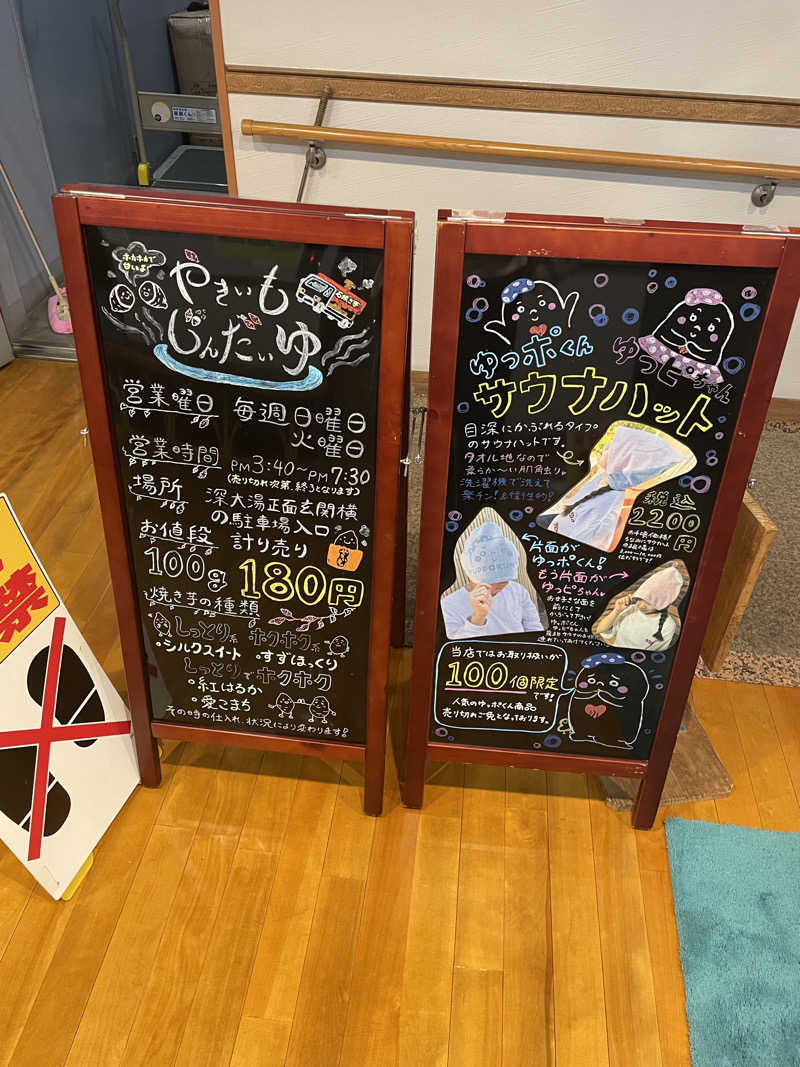 ホカホカで
甘いよ
やきいも
じんだいゆ
営業曜日 毎週日曜日
火曜日
営業時間
PM3:40~PM7:30
(売り切れ次第、終了となります)
場所 深大湯正面玄関横
の駐車場入口
お値段 計り売り
100g 180円
焼き芋の種類
しっとり系 ホクホク系
・シルクスイート ・すずほっくり
しっとりでホクホク
・紅はるか
・愛こまち
その時の仕入れ、状況により変わります!
ゆっポくん
ゆっピちゃん
サウナハット
目深にかぶれるタイプ
のサウナハットです。
タオル地なので
柔らか〜い肌触り♪
洗濯機で洗えて
楽チン!
税込
2200
円
片面が
ゆっポくん!
もう片面が
ゆっピちゃん
お好きな面を
前にして
かぶって下さい!
当店ではお取り扱いが
100個限定
です!
人気のゆっポくん商品
売り切れご免となっております。
禁